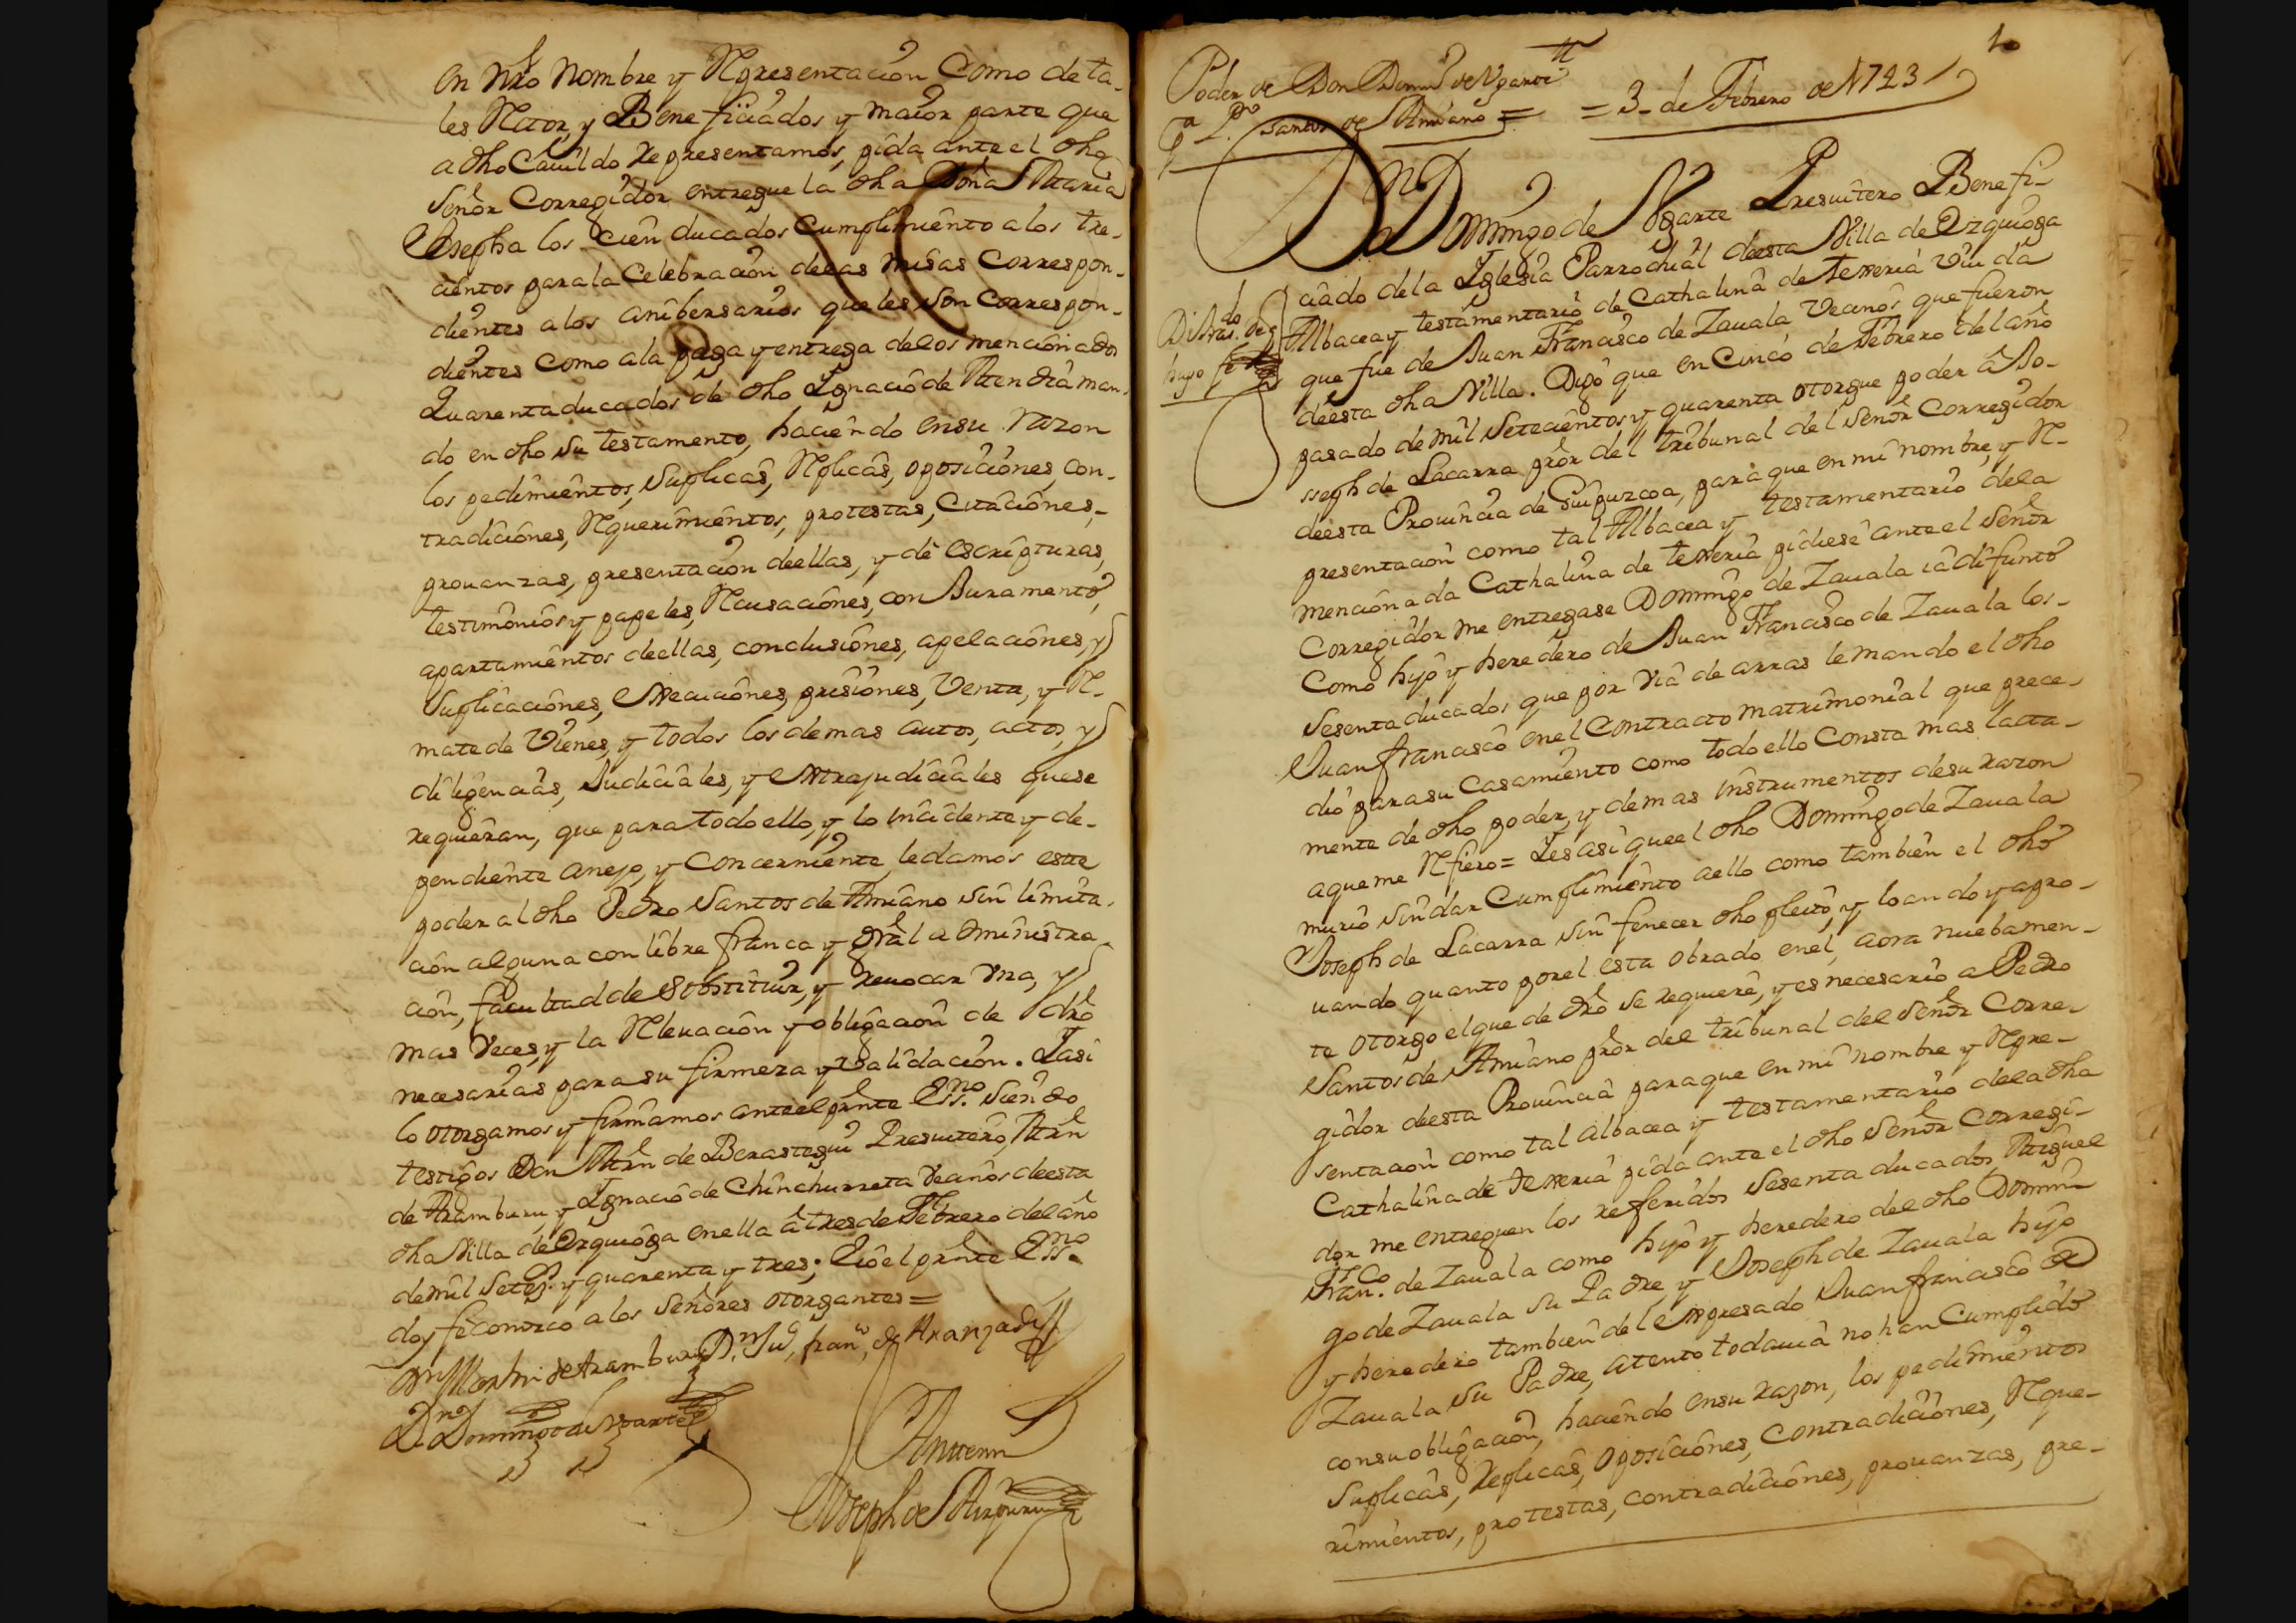 en nrô nombre y Representaciôn Como de ta-
les Retor, y Beneficiados y maior parte que
a dho Cauildo representamos, pida ante el dho
Señor Corregidor entregue la dha Doña Maria
Josepha los cien ducados Cumplimiento a los tre-
cientos para la Celebraciôn de las misas Correspon-
dientes a los anibersarios que les son Correspon-
dientes como a la paga y entrega de los mencionados
Quarenta ducados de dho Ygnacio de Mendia man-
do, en dho su testamento, haciendo en su razon
los pedimientos, suplicas, Replicas, oposiciones, con-
tradiciones, Requerimientos, protestas, Citaciones,-
prouanzas, presentaciôn deellas, y de escripturas,
testimonios y papeles, Recusaciones, con Juramento,
apartamientos deellas, conclusiones, apelaciones, y
Suplicaciones, Execuciones, prisiones, Venta, y R-
mate de Vienes, y todos los demas autos, actos, y
diligencias, Judiciales, y extrajudiciales que se
requieran, que para todo ello, y lo incidente y de-
pendiente anejo, y Concerniente, le damos este
poder al dho Pedro Santos de Amiano sin limita-
ciôn alguna con libre franca y grâl administra-
ciôn, facultad de Sobstituir, y reuocar Vna, y
mas Veces, y la Releuaciôn y obligaciôn de drô
necesarias para su firmeza y Validaciôn. Y asi
lo otorgamos y firmamos ante el prêsnte Ess.no siendo
testigos Don Mrîn de Berastegui Presuitero, Mrîn
de Aramburu, y Ygnacio de Chinchurreta Vecinos deesta
dha Villa de Ezquioga en ella â tres de Febrero del año
de mil Setez.s y quarenta y tres; E io el prêsnte Ess.no
doy fe Conozco a los Señores otorgantes =
Dn Martin de Aramburu Dn. Ju, fran.co de Aranzadi
Dn Domingo de Vgarte
Ante mi
Joseph de Aizpuru
10
Poder de Don Dom.o de Vgarte
pª P.º Santos de Amiano = = 3 de Febrero de 1743
Dn Domingo de Vgarte Presuitero Benefi-
ciado de la Yglesia Parrochiâl deesta Villa de Ezquioga
Albacea y testamentario de Cathalina de Telleria Viuda
que fue de Juan Francisco de Zauala Vecinos que fueron
deesta dha Villa. Digo que en Cinco de Febrero del año
pasado de mil Setecientos y quarenta otorgue poder â Jo-
sseph de Lacarra prôr del tribunal del Señor Corregidor
deesta Prouincia de Guipuzcoa, para que en mi nombre, y R-
presentacion como tal Albacea y testamentario de la
mencionada Cathalina de Telleria pidiese ante el Señor
Corregidor me entregase Domingo de Zauala iâ difunto
Como hijo y heredero de Juan Francisco de Zauala los-
Sesenta ducados que por via de arras le mando el dho
Juan francisco en el Contracto matrimonial que prece-
dio para su Casamiento como todo ello Consta mas lacta-
mente de dho poder, y demas instrumentos desu razon
aque me Refiero = Y es asi que el dho Domingo de Zauala
murio sin dar Cumplimiento a ello como tambien el dho
Joseph de Lacarra sin fenecer dho pleito, y loando y apro-
uando quanto por el esta obrado en el, aora nuebamen-
te otorgo el que de drô se requiere, y es necesario a Pedro
Santos de Amiano prôr del tribunal del Señor Corre-
gidor deesta Prouincia para que en mi nombre y Repre-
sentacion como tal albacea y testamentario de la dha
Cathalina de Telleria pida ante el dho Señor Corregi-
dor me entreguen los refferidos Sesenta ducados, Miguel
Fran.co de Zauala como hijo y heredero de el dho Domin-
go de Zauala su Padre y Joseph de Zauala hijo
y heredero tambien del expresado Juan francisco de
Zauala su Padre, atento todauia no han Cumplido
con su obligaciôn, haciendo en su razon, los pedimientos
Suplicas, Replicas, oposiciones, Contradiciones, Reque-
rimientos, protestas, contradiciones, prouanzas, pre-